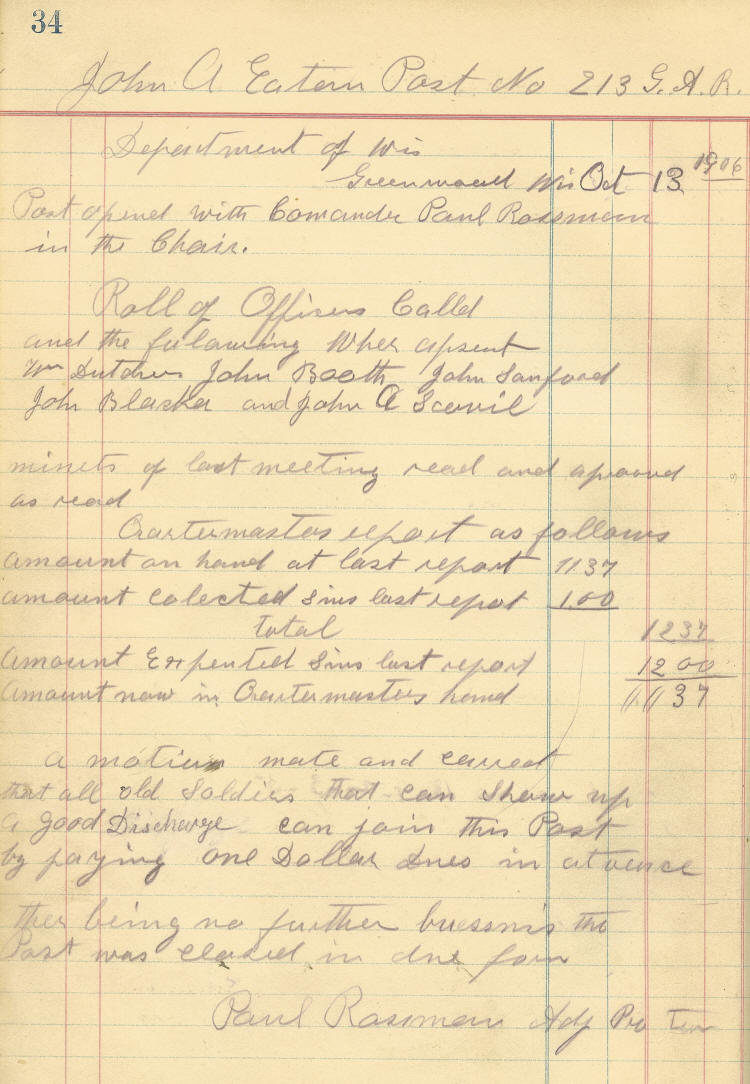 34
John A Eaton Post No 213 G. A. R.
Department of Wis
Greenwood Wis Oct 13 1906
Post opend with Comander Paul Rossman
in the Chair.
Roll of Officers Calld
and the folowing Wher apsent
Wm Dutcher John Booth John Sanford
John Blaska and John A Scovil
minets of last meeting read and aproovd
as read
Qartermasters report as follows
amount on hand at last report 11.37
amount colected sins last report 1.00
total 12 37
amount Expented sins last report 12 00
amount now in Qartermasters hand 37
a motion mate and carred
that all old Soldiers that can show up
a good Discharge can join this Post
by paying one Dollar dues in atvence
ther being no further buessnis the
Post was closed in due form
Paul Rossman Adj Pro Tem